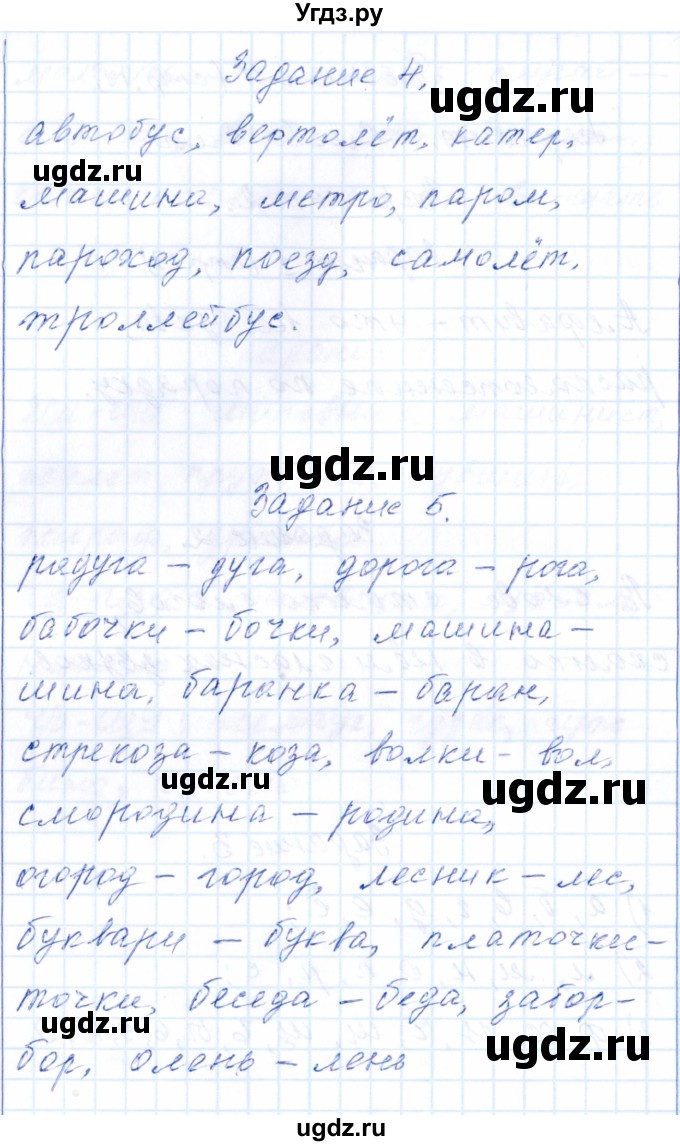 Угдз.ру
Задание 4.
ugdz.ru
автобус, вертолёт, катер,
ugdz.ru
машина, метро, паром,
пароход, поезд, самолёт,
троллейбус.
ugdz.ru
Задание 5.
радуга – дуга, дорога – рога,
бабочки – бочки, машина –
шина, баранка – баран,
стрекоза – коза, волки – вол,
ugdz.ru
ugdz.ru
смородина – родина,
огород – город, лесник – лес,
буквари – буква, платочки –
точки, беседа – беда, забор –
ugdz.ru
ugdz.ru
бор, олень – лень
ugdz.ru